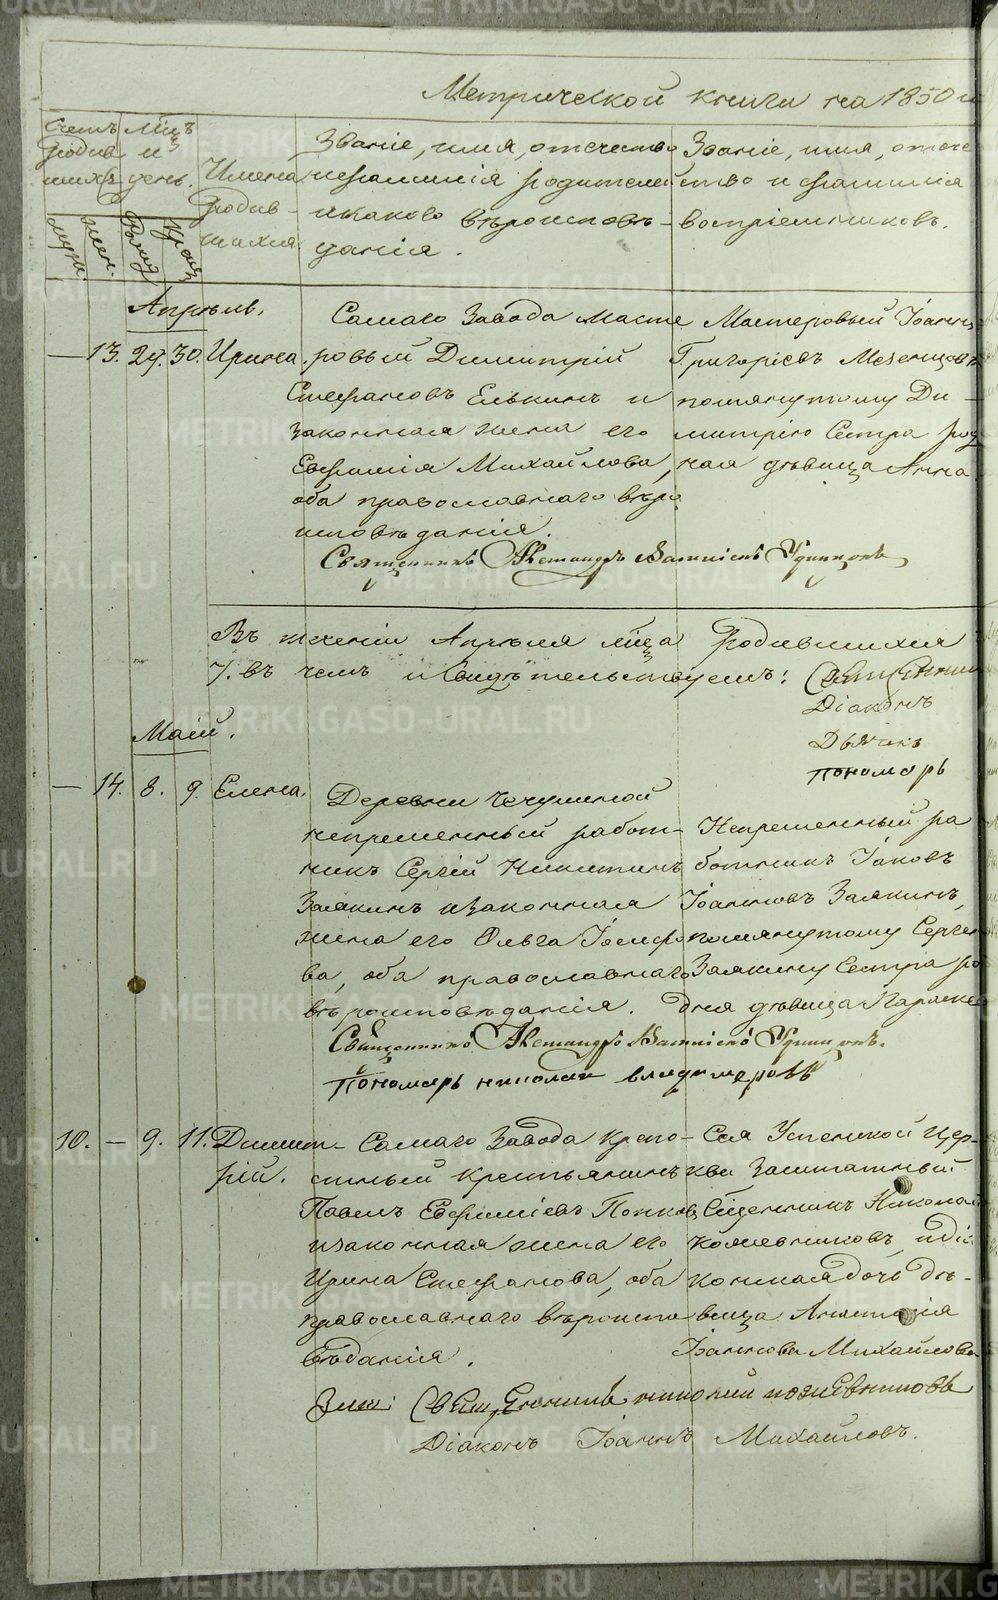 Метрической книги на 1850
Счетъ родившихся
Мѣсяцъ и день.
Имена родившихся
Званіе, имя, отчество и фамилія родителей и какого вѣроисповѣданія.
Званіе, имя, отчество и фамилія воспріемниковъ.
муж.
жен.
Рожд.
Крещ.
Апрѣль.
13. 29. 30. Ирина.
Самаго Завода Мастеровый Димитрій
Стефановъ Елькинъ и
законная жена его
Евфимія Михайлова,
оба православнаго вѣро
исповѣданія.
Мастеровый Іоаннъ
Григорьевъ Мезенцовъ
помянутому Ди-
митрію Сестра род
ная дѣвица Анна
Священникъ Александръ Удинцовъ
Въ теченіи Апрѣля мѣсяца родившихся
7. въ чемъ и свидѣтельствуемъ: Священник
Діаконъ
Дьячекъ
Пономарь
Маій.
14. 8. 9. Елена.
Деревни
непременный работ-
никъ Сергій Никитинъ
Заякинъ и законная
жена его Ольга Іосифо
ва, оба православнаго
вѣроисповѣданія.
Непременный ра
ботникъ Іаковъ
Іоанновъ Заякинъ,
помянутому Сергею
Заякину Сестра ро
дная дѣвица Параске
Священникъ Александръ Удинцовъ.
Пономарь Николай Владимеровъ
10. — 9. 11. Димит-
рій.
Самаго Завода крепо-
стный крестьянинъ
Павелъ Евфиміевъ Попковъ
и законная жена его
Ирина Стефанова, оба
православнаго вѣроиспо
вѣданія.
Сея Успенской Цер-
кви Заштатный
Священникъ Николай
Кожевниковъ, и діа
конская дочь дѣ-
вица Анастасія
Іоаннова Михайлова
Священникъ Николай Кожевниковъ
Діаконъ Іоаннъ Михайловъ.
METRIKI.GASO-URAL.RU